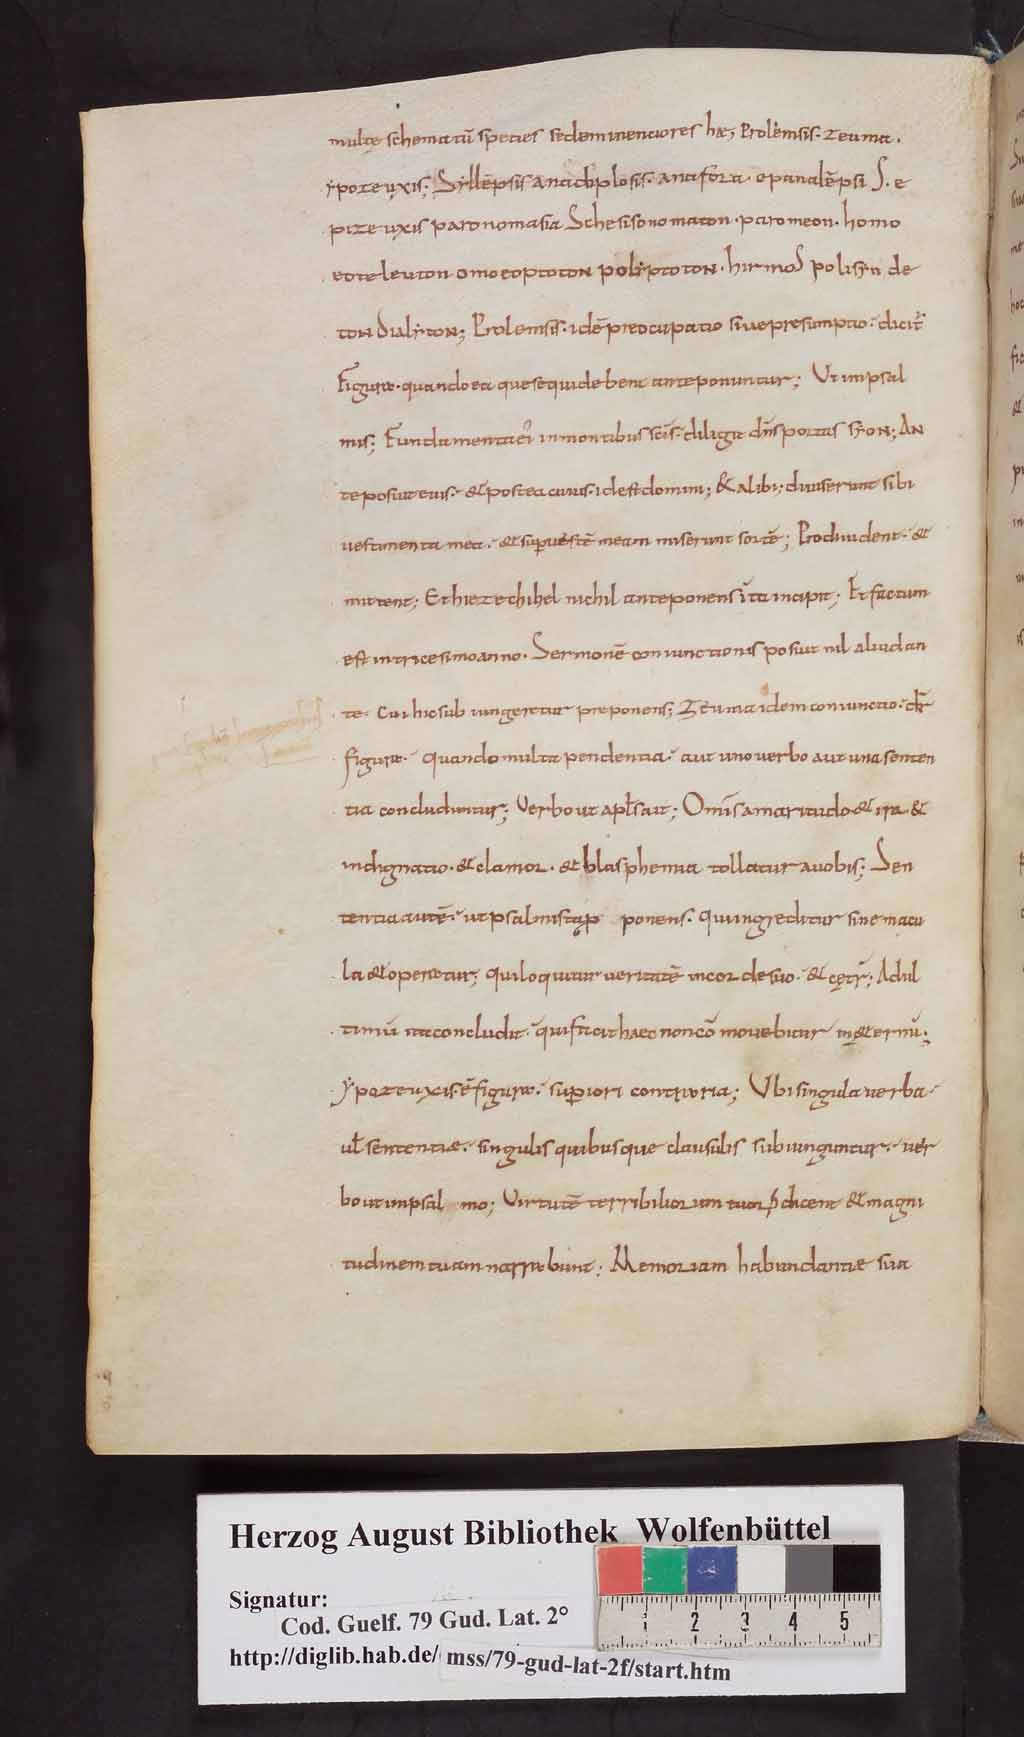 multę schematū species sedeminenciores hę; Prolēmsis. Zeuma.
ypozeuxis; Syllēpsis anadiplosis. anafora. epanalēpsi S. e
pizeuxis paronomasia Schesisonomaton. paromeon. homo
eoteleuton omoeoptoton polyptoton. hirmoS polisyn de
ton Dialyton; Prolemsis. idē preocupatio sivepresumptio. dicit̄
Figura. quandoea quesequidebent anteponuntur; Ut impsal
mis; Fundamentaei inmontibus sc̄is. diligit dn̄s portas syon; AN
teposuit eius. & postea cuius. id est domini; & alibi; diuiserunt sibi
uestimenta mea. & sup uestē meam miserunt sortē; Prodiuident. &
mittent; Ethiezechihel nichil anteponens ita incipit; Et factum
est in tricesimo anno. Sermonē coniunctionis posuit nil aliud an
te. cui hic subiungeretur preponens; Zeuma idem coniunctio. dr̄
figura. quando multa pendentia. aut uno uerbo aut una senten
tia concluduntur; Verbo ut apl̄s ait; Om̄is amaritudo & ira &
indignatio. & clamor. & blasphemia tollatur a uobis; Sen
tentia autē. ut psalmista p ponens. Qui ingreditur sine macu
la & operatur; qui loquitur ueritatē in corde suo. & cętr̄; Adul
timū ita concludit. qui facit haec non cō mouebitur in ętternū;
ypozeuxis. ē figura. superiori contraria; Ubi singula uerba
ul̄ sententiae. singulis quibusque clausulis subiunguntur. uer
bo ut in psal mo; Virtutē terribiliorum tuoꝝ dicent & magni
tudinem tuam narrabunt; Memoriam habundantiae sua
Herzog August Bibliothek Wolfenbüttel
Signatur:
Cod. Guelf. 79 Gud. Lat. 2°
http://diglib.hab.de/ mss/79-gud-lat-2f/start.htm
1 2 3 4 5